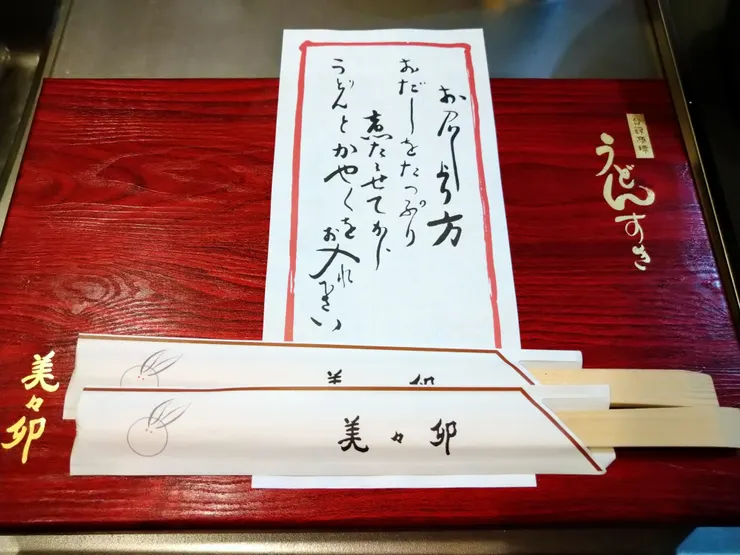 お召し上り方
おだしをたっぷり
煮たたせてから
うどんとかやくを
お入れ下さい
登録商標
うどんすき
美々卯
美 卯
美々卯